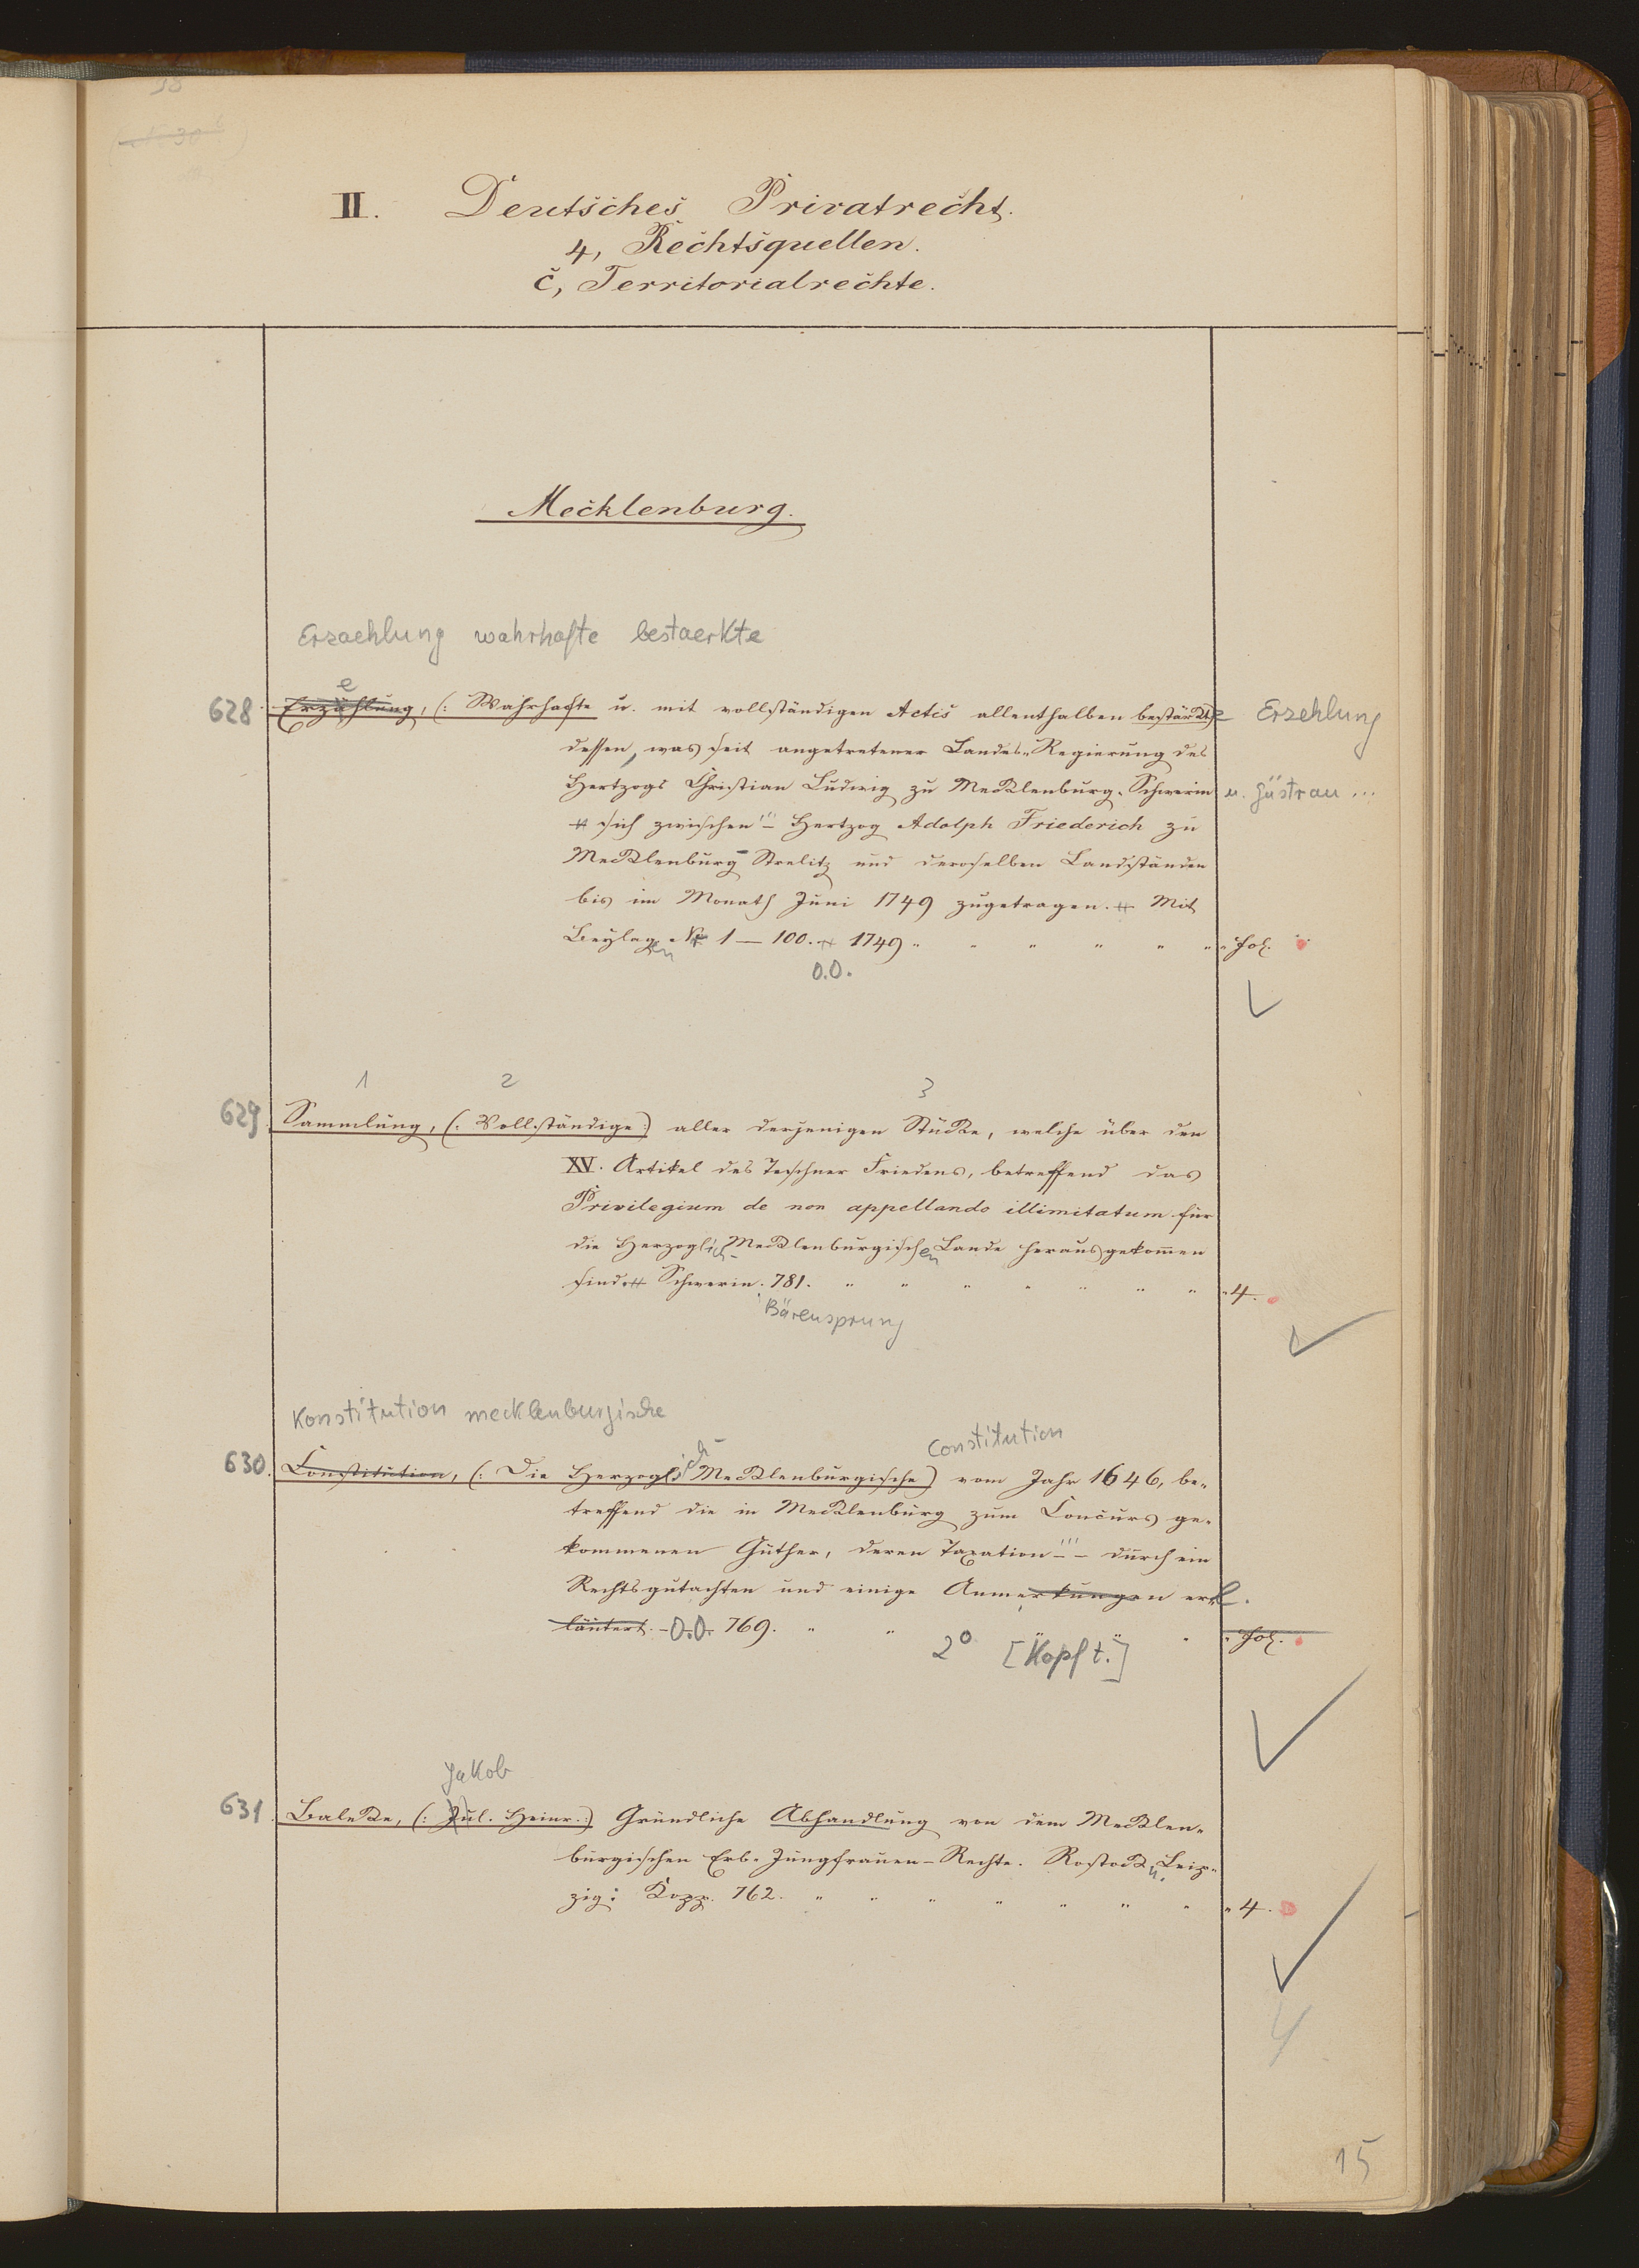 II. Deutsches Privatrecht.
4, Rechtsquellen.
c, Territorialrechte.
Mecklenburg.
Erzaehlung wahrhafte bestaerkte
e
628. Erzählung, (: Wahrhafte u. mit vollständigen Actis allenthalben bestärkte Erzehlung
dessen, was seit angetretener Landes-Regierung des
Hertzogs Christian Ludwig zu Mecklenburg-Schwerin u. Güstrau ...
sich zwischen ''' Hertzog Adolph Friederich zu
Mecklenburg-Strelitz und deroselben Landständen
bis im Monath Juni 1749 zugetragen. Mit
Beylagen Nr 1 — 100. 1749. Fol.
O.O.
1 2 3
629. Sammlung, (: Vollständige :) aller derjenigen Stücke, welche über den
XV. Artikel des Teschner Friedens, betreffend das
Privilegium de non appellando illimitatum für
die Herzoglich-Mecklenburgischen Lande herausgekommen
sind. Schwerin. 781. 4.
Bärensprung
Konstitution mecklenburgische
Constitution
630. Constitution, (: Die Herzoglich-Mecklenburgische) vom Jahr 1646, be-
treffend die in Mecklenburg zum Concurs ge-
kommenen Güther, deren Taxation ''' - durch ein
Rechtsgutachten und einige Anmerkungen erl.
läutert. - O.O. 769. Fol.
2° [Kopft.]
Jakob
631. Balecke, (: Jul. Heinr. :) Gründliche Abhandlung von dem Mecklen-
burgischen Erb-Jungfrauen-Rechte. Rostock u. Leip-
zig: Kopp. 762. 4.
15